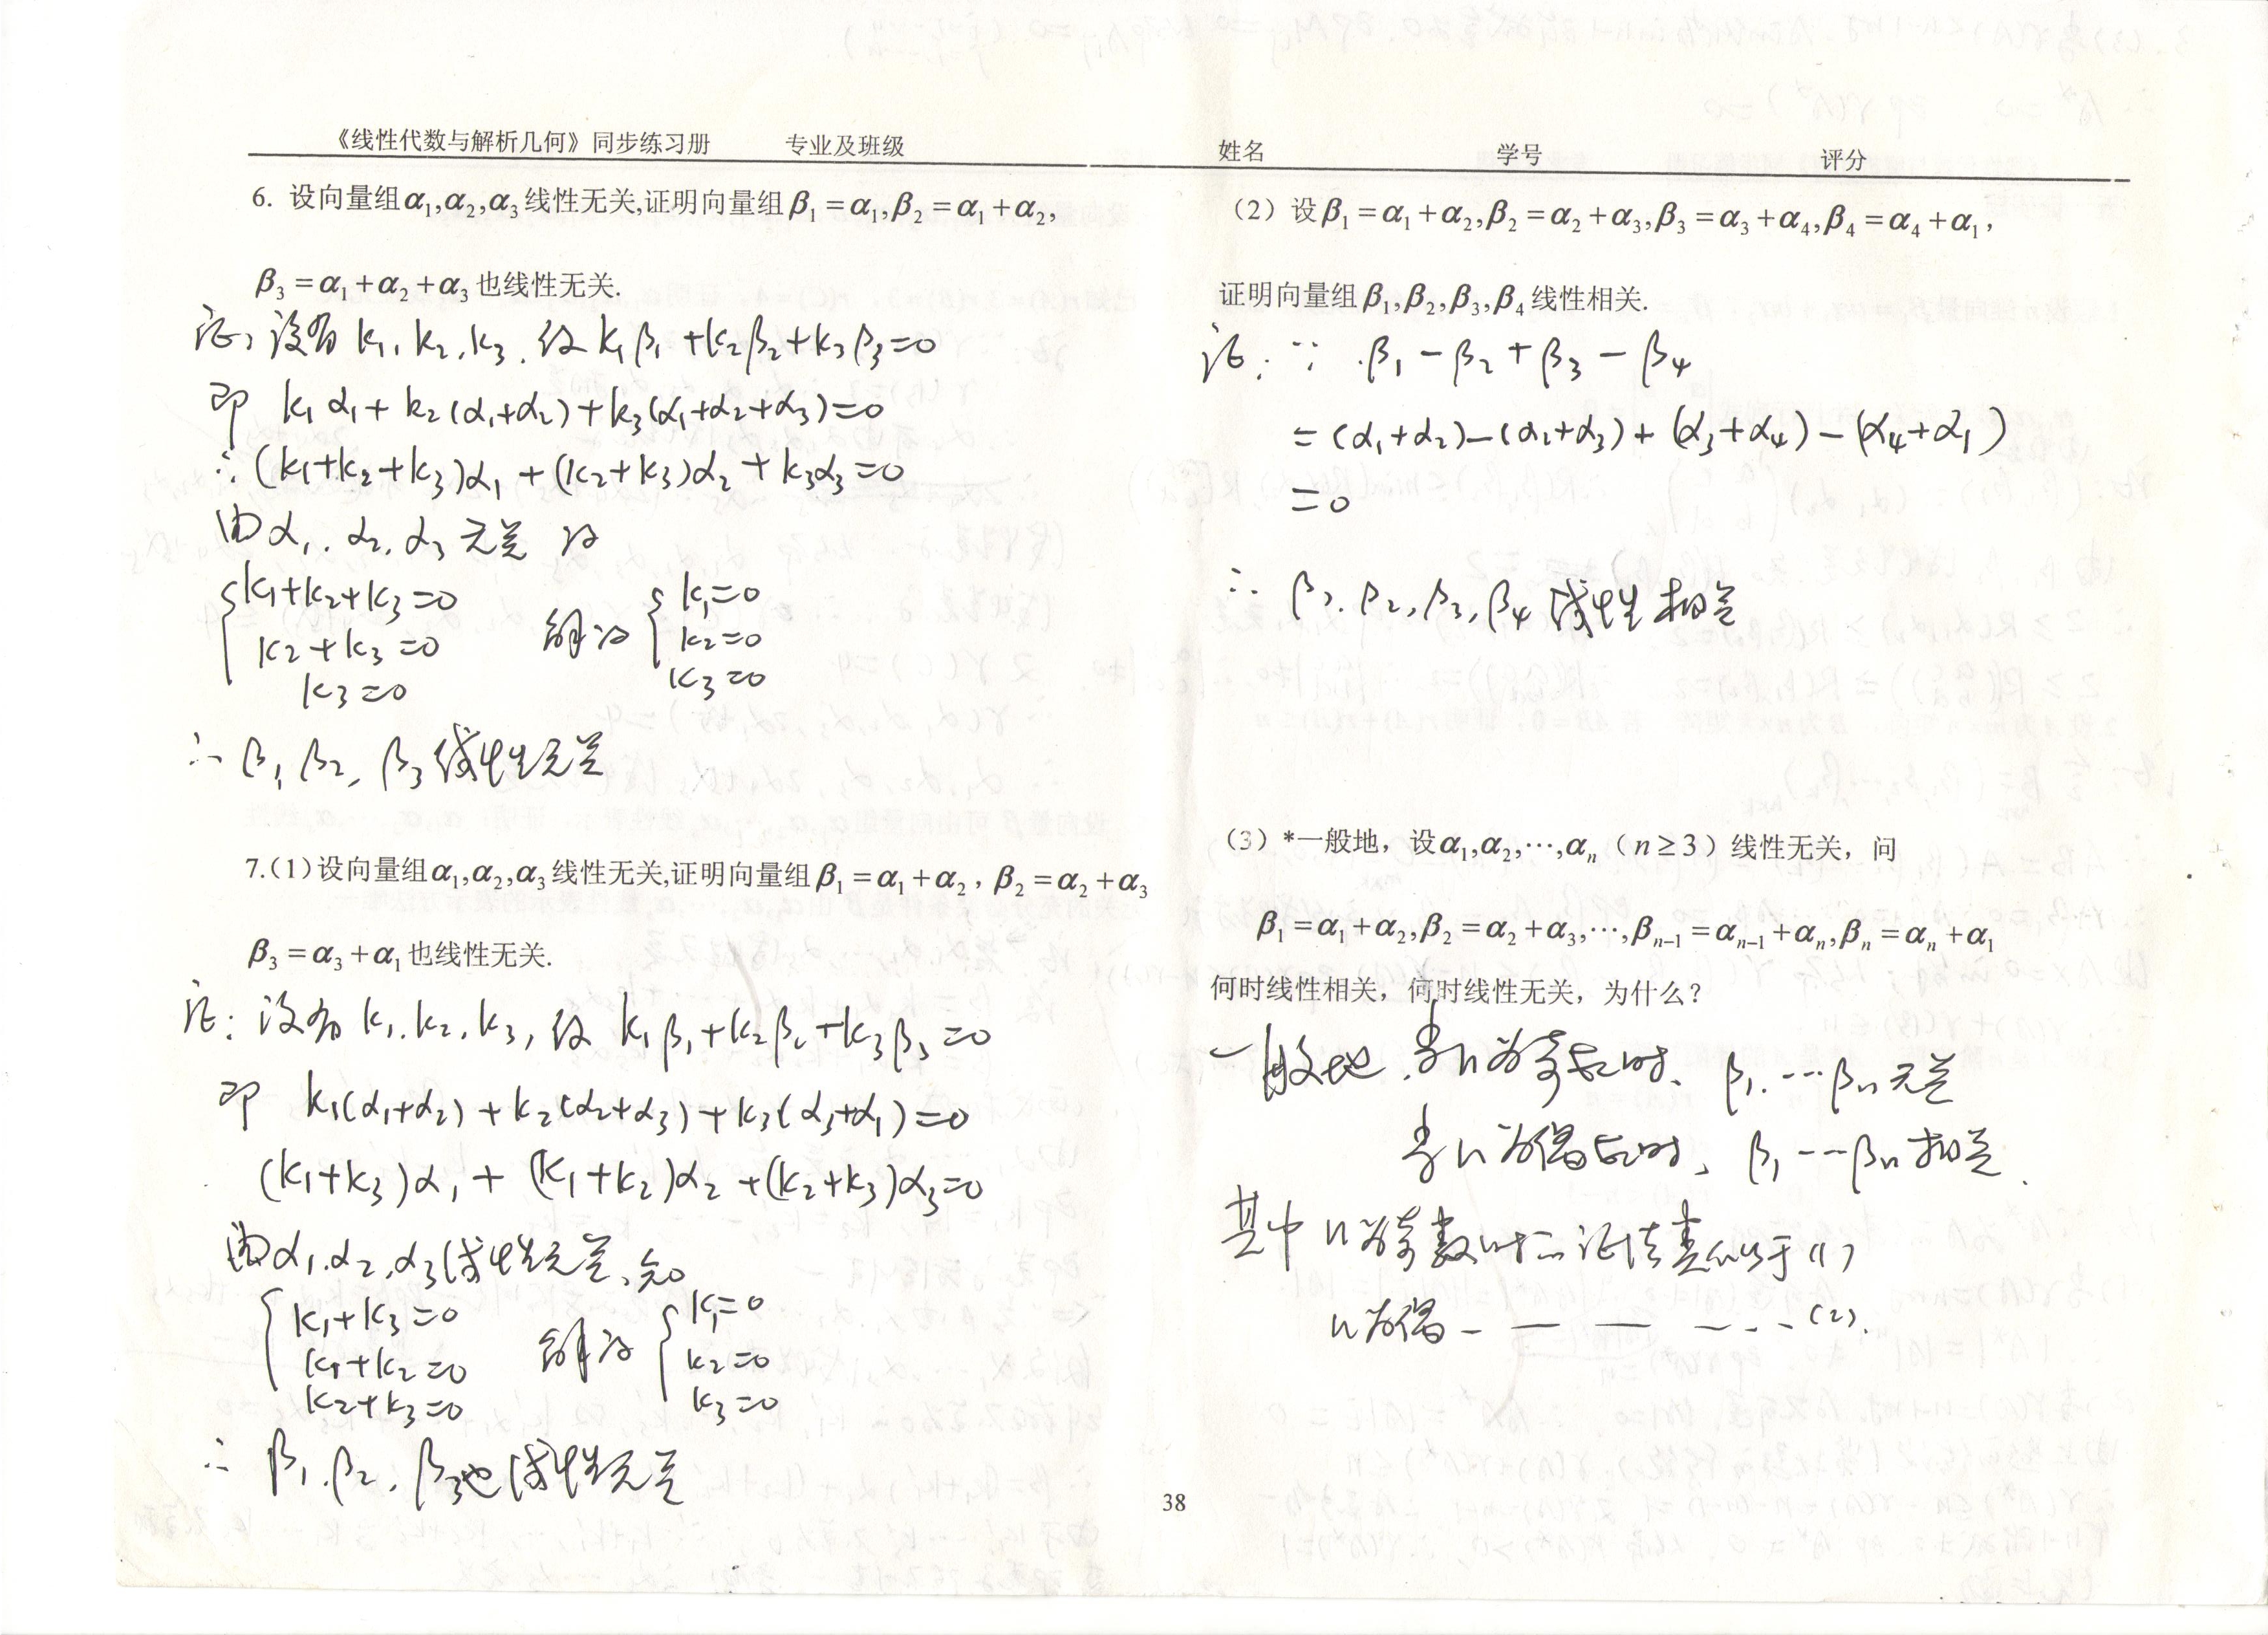 《线性代数与解析几何》同步练习册 专业及班级 姓名 学号 评分
6. 设向量组α₁,α₂,α₃线性无关,证明向量组β₁=α₁,β₂=α₁+α₂,
β₃=α₁+α₂+α₃也线性无关.
证: 设有 k₁, k₂, k₃. 使 k₁β₁+k₂β₂+k₃β₃=0
即 k₁α₁+k₂(α₁+α₂)+k₃(α₁+α₂+α₃)=0
∴ (k₁+k₂+k₃)α₁+(k₂+k₃)α₂+k₃α₃=0
由α₁, α₂, α₃无关 得
{k₁+k₂+k₃=0 解得 {k₁=0
k₂+k₃=0 k₂=0
k₃=0 k₃=0
∴ β₁, β₂, β₃线性无关
7.(1)设向量组α₁,α₂,α₃线性无关,证明向量组β₁=α₁+α₂, β₂=α₂+α₃
β₃=α₃+α₁也线性无关.
证: 设有 k₁, k₂, k₃, 使 k₁β₁+k₂β₂+k₃β₃=0
即 k₁(α₁+α₂)+k₂(α₂+α₃)+k₃(α₃+α₁)=0
(k₁+k₃)α₁+(k₁+k₂)α₂+(k₂+k₃)α₃=0
由α₁, α₂, α₃线性无关, 知
{k₁+k₃=0 解得 {k₁=0
k₁+k₂=0 k₂=0
k₂+k₃=0 k₃=0
∴ β₁, β₂, β₃也线性无关
(2) 设β₁=α₁+α₂,β₂=α₂+α₃,β₃=α₃+α₄,β₄=α₄+α₁,
证明向量组β₁,β₂,β₃,β₄线性相关.
证: ∵ β₁-β₂+β₃-β₄
=(α₁+α₂)-(α₂+α₃)+(α₃+α₄)-(α₄+α₁)
=0
∴ β₁, β₂, β₃, β₄线性相关
(3) *一般地, 设α₁,α₂,⋯,αₙ (n≥3) 线性无关, 问
β₁=α₁+α₂,β₂=α₂+α₃,⋯,βₙ₋₁=αₙ₋₁+αₙ,βₙ=αₙ+α₁
何时线性相关, 何时线性无关, 为什么?
一般地, 当n为奇数时, β₁, ⋯ βₙ无关
当n为偶数时, β₁ ⋯ βₙ相关.
其中n为奇数时 证法类似于(1)
n为偶 - — — - - - (2).
38